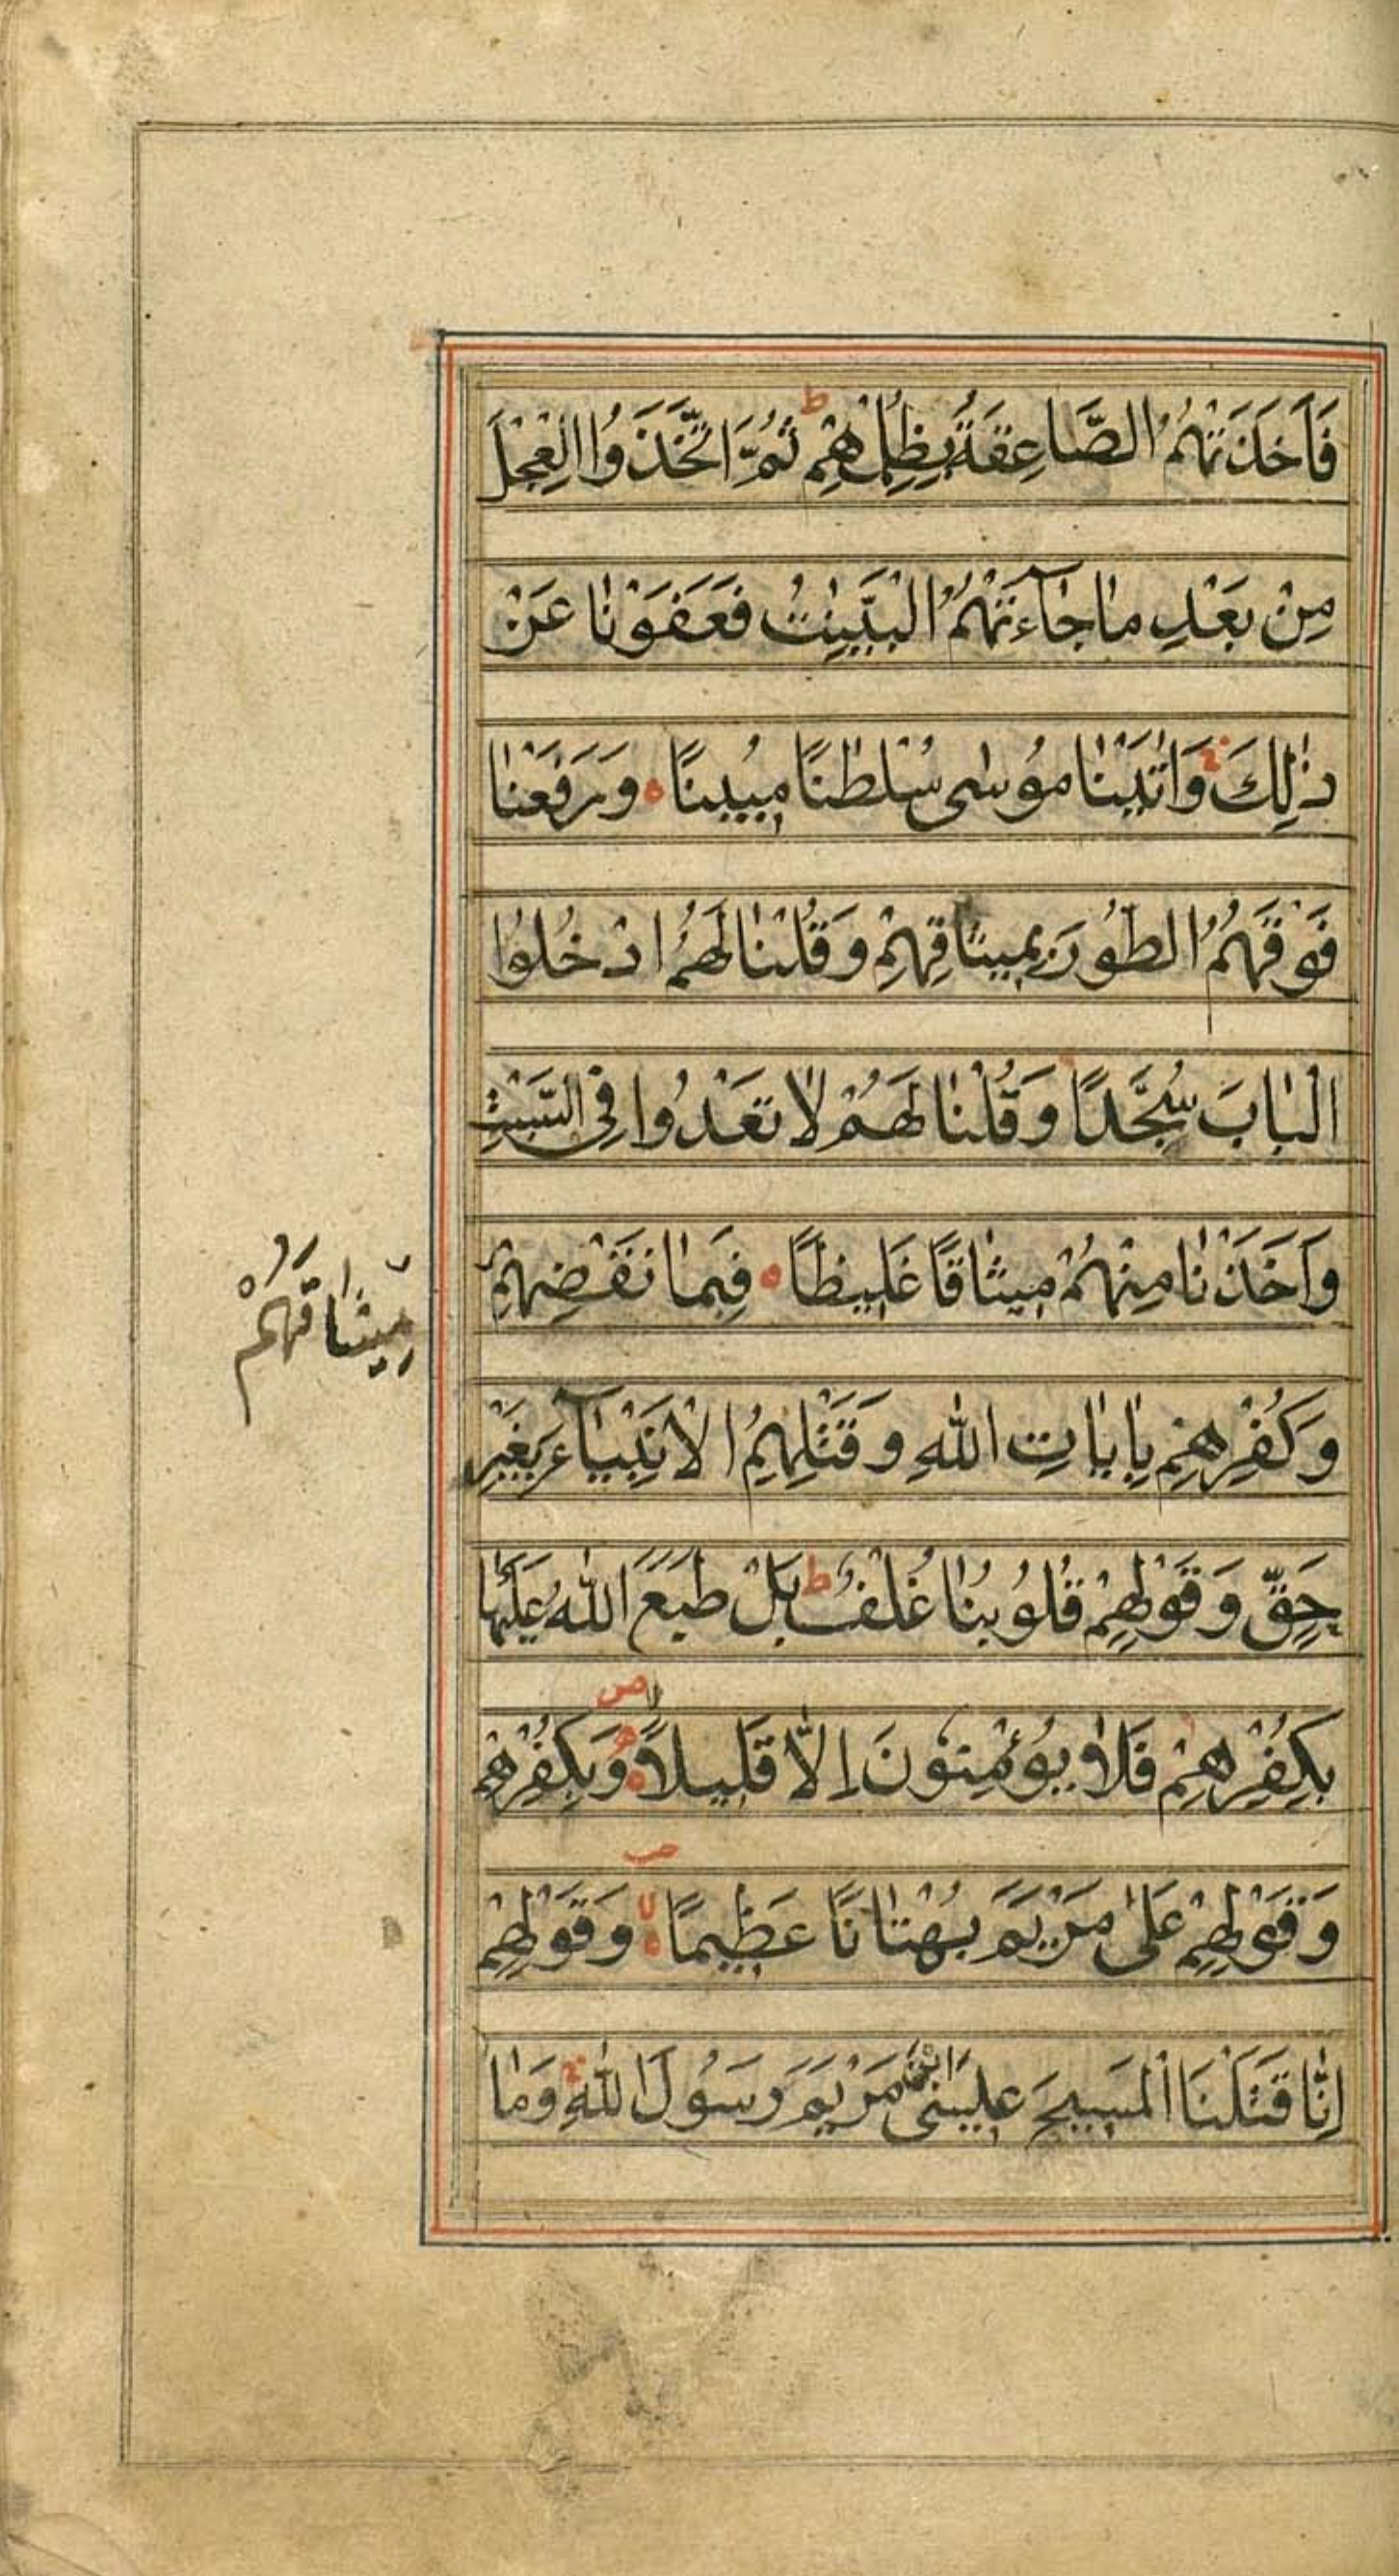 فَاَخَذَتْهُمُ الصَّاعِقَةُ بِظُلْمِهِمْ ط ثُمَّ اتَّخَذُوا الْعِجْلَ
مِنْ بَعْدِ مَا جَآءَتْهُمُ الْبَيِّنٰتُ فَعَفَوْنَا عَنْ
ذٰلِكَ وَاٰتَيْنَا مُوْسٰى سُلْطٰنًا مُبِيْنًا ه وَرَفَعْنَا
فَوْقَهُمُ الطُّوْرَ بِمِيْثَاقِهِمْ وَقُلْنَا لَهُمُ ادْخُلُوا
الْبَابَ سُجَّدًا وَقُلْنَا لَهُمْ لَا تَعْدُوْا فِى السَّبْتِ
وَاَخَذْنَا مِنْهُمْ مِيْثَاقًا غَلِيْظًا ه فَبِمَا نَقْضِهِمْ
مِيْثَاقَهُمْ
وَكُفْرِهِمْ بِاٰيَاتِ اللّٰهِ وَقَتْلِهِمُ الْاَنْبِيَآءَ بِغَيْرِ
حَقٍّ وَقَوْلِهِمْ قُلُوْبُنَا غُلْفٌ ط بَلْ طَبَعَ اللّٰهُ عَلَيْهَا
بِكُفْرِهِمْ فَلَا يُؤْمِنُوْنَ اِلَّا قَلِيْلًا وَبِكُفْرِهِمْ
وَقَوْلِهِمْ عَلٰى مَرْيَمَ بُهْتَانًا عَظِيْمًا وَقَوْلِهِمْ
اِنَّا قَتَلْنَا الْمَسِيْحَ عِيْسَى ابْنَ مَرْيَمَ رَسُوْلَ اللّٰهِ وَمَا